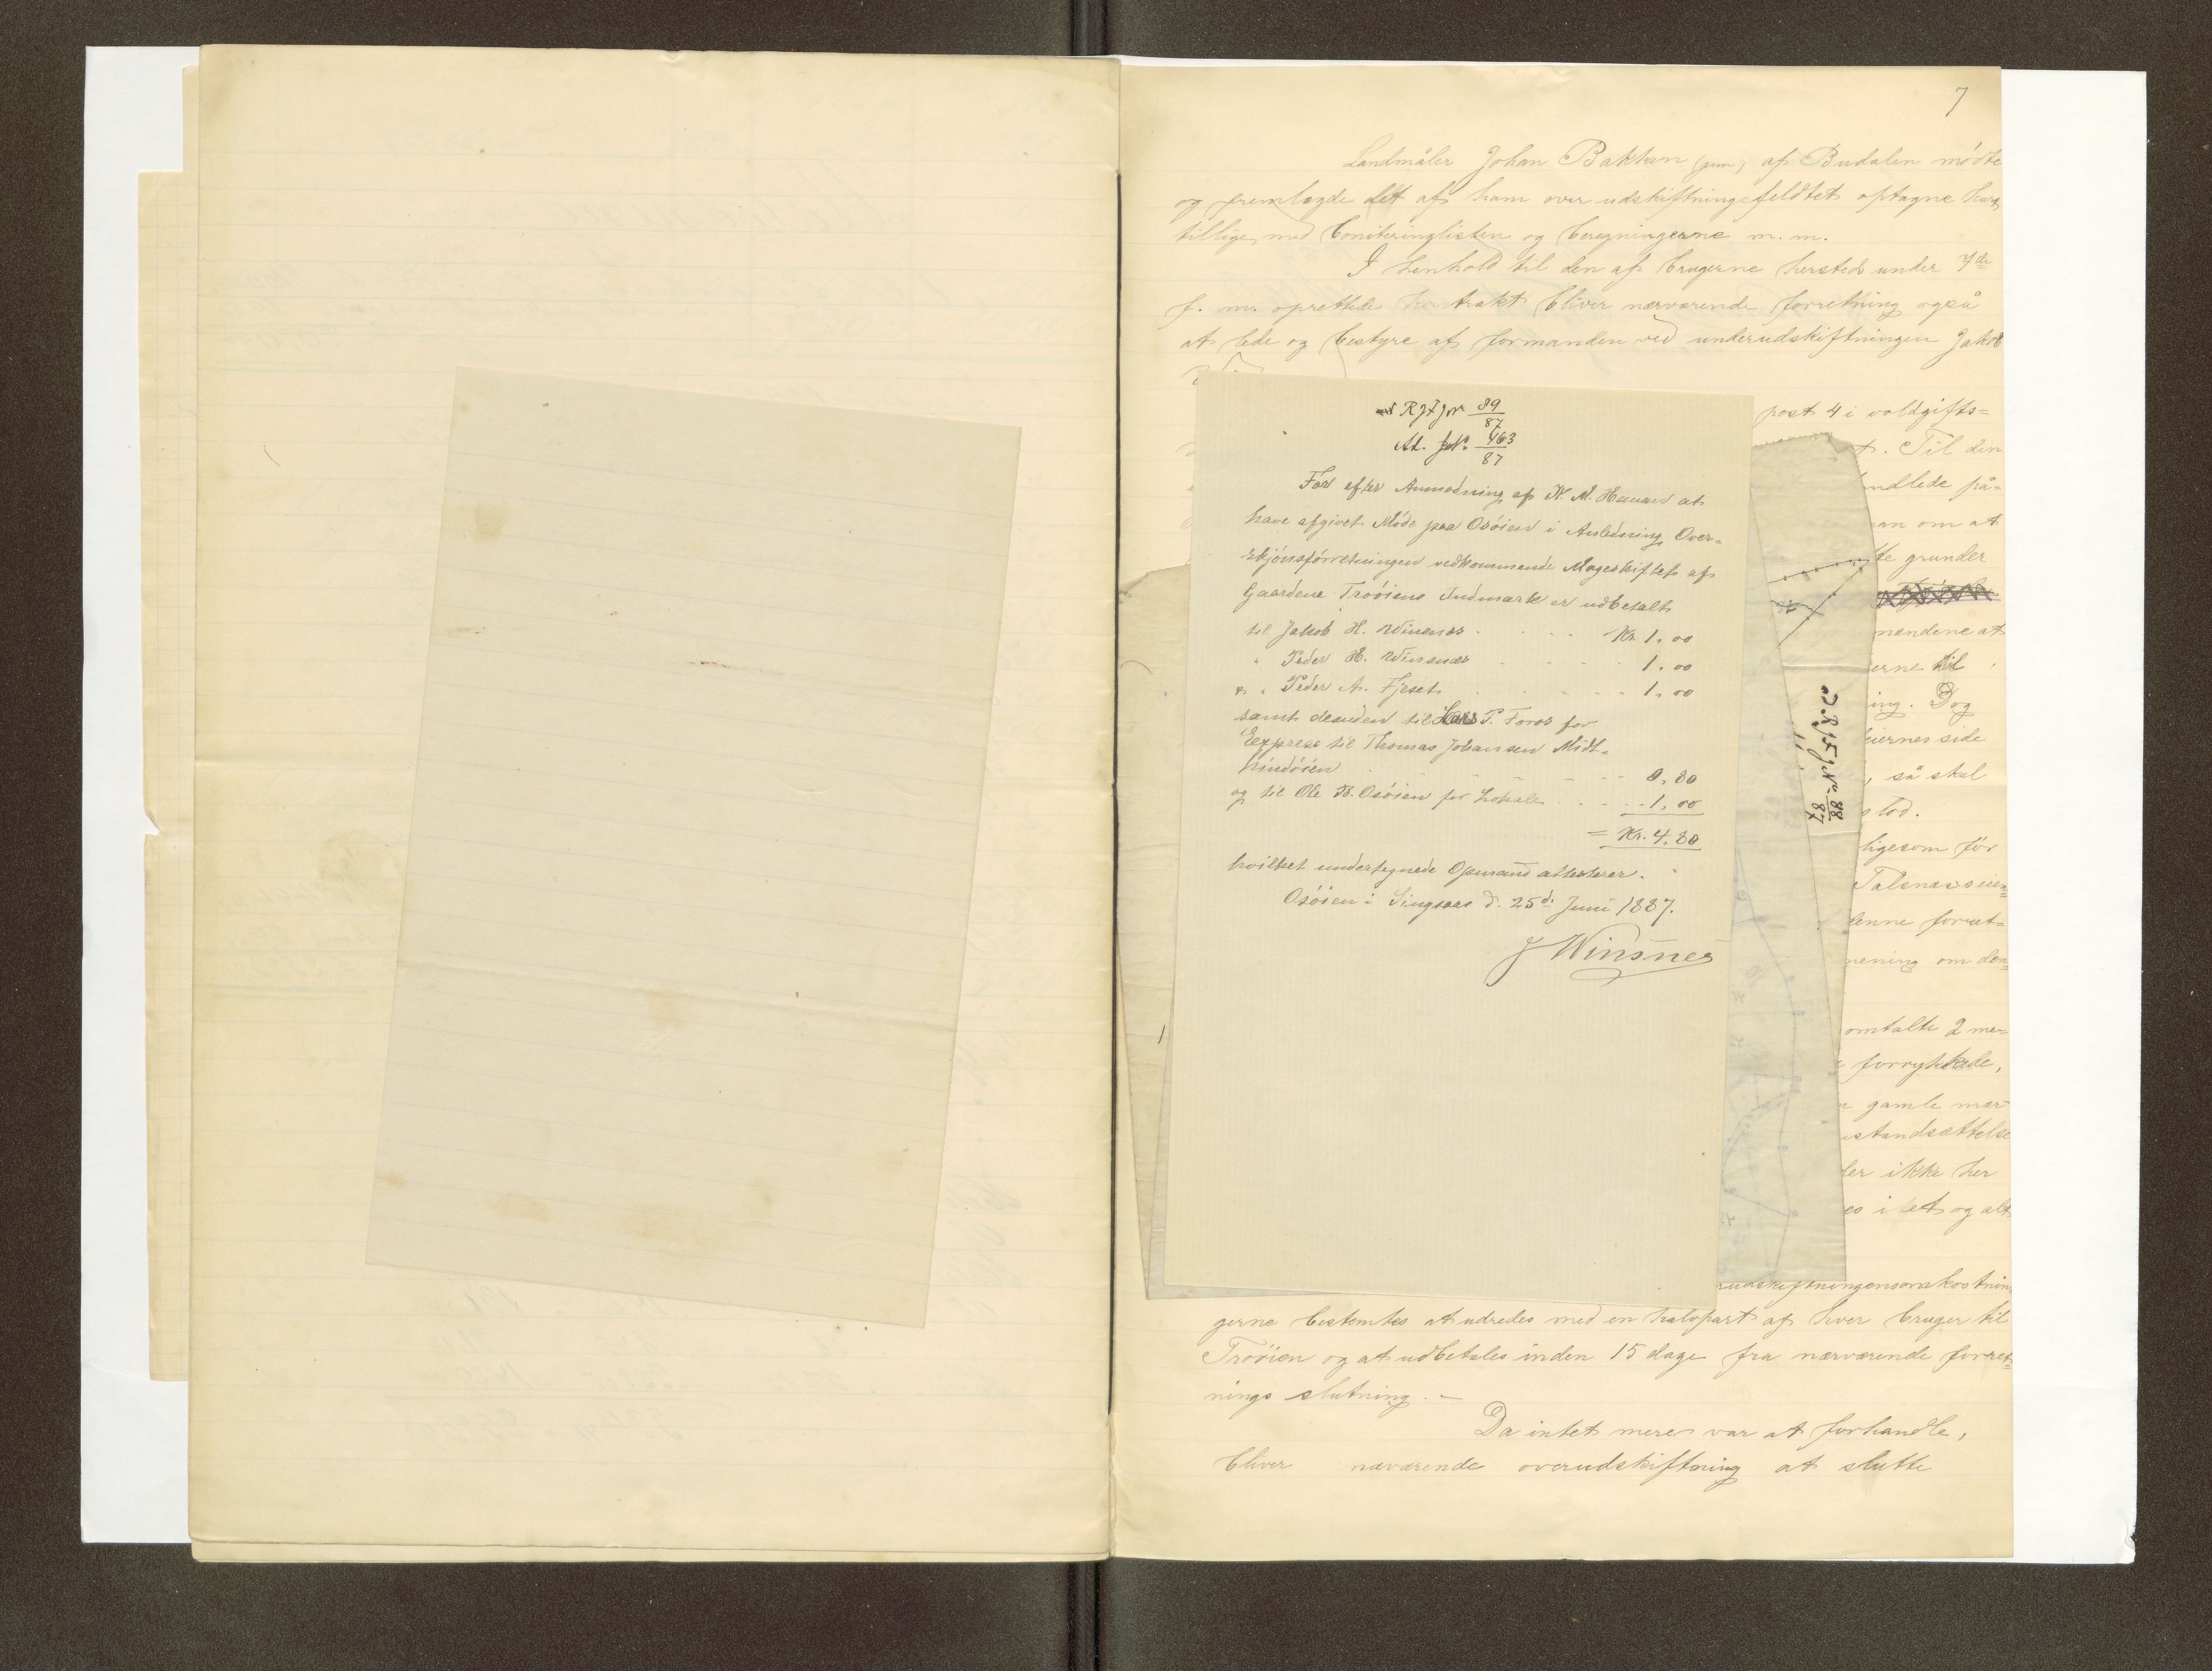 7
Landmåler Johan Bakken (jun) af Budalen mödte
og fremlagde det af ham over udskiftningsfeldtet optagne kart
tillige med boniteringlisten og beregningerne m. m.
I henhold til den af brugerne hersteds under 7de
f. m. oprettede kontrakt bliver nærværende forretning også
at lede og bestyre af formanden ved underudskiftningen Jakob
post 4 i voldgifts=
Til den
ndlede på=
an om at
te grunder
mændene at
erne til
ing. Dog
eiernes side
, så skal
stod.
ligesom för
denne forret=
mening om den=
omtalte 2 me=
forrykkede,
gamle mær
istandsættelse
ler ikke her
es i et og alt
rudskiftningensomkostnin
gerne bestemtes at udredes med en halvpart af hver bruger til
Troöien og at udbetales inden 15 dage fra nærværende forret=
nings slutning. –
Da intet mere var at forhandle,
bliver nærværende overudskiftning at slutte
ad RJF J No 89/87
At. J.No. 463/87
For efter Anmodning af K. M. Hanem at
have afgivet Möde paa Osöien i Anledning Over-
skjönsforretningen vedkommende Mageskiftet af
Gaardene Troöiens Indmark er udbetalt
til Jakob H. Winsnes . . . . Kr. 1.00
" Peder H. Winsnes . . . . 1.00
" " Peder A. Fjeset . . . . 1.00
samt desuden til Lars P. Foros for
Express til Thomas Johansen Midt-
hindöien . . . . 0.80
og til Ole B. Osöien for Lokale . . . . 1.00
= Kr. 4.80
hvilket undertegnede Opmand attesterer.
Osöien i Singsaas d. 25d. Juni 1887.
J Winsnes
ad RJF J No. 88/87